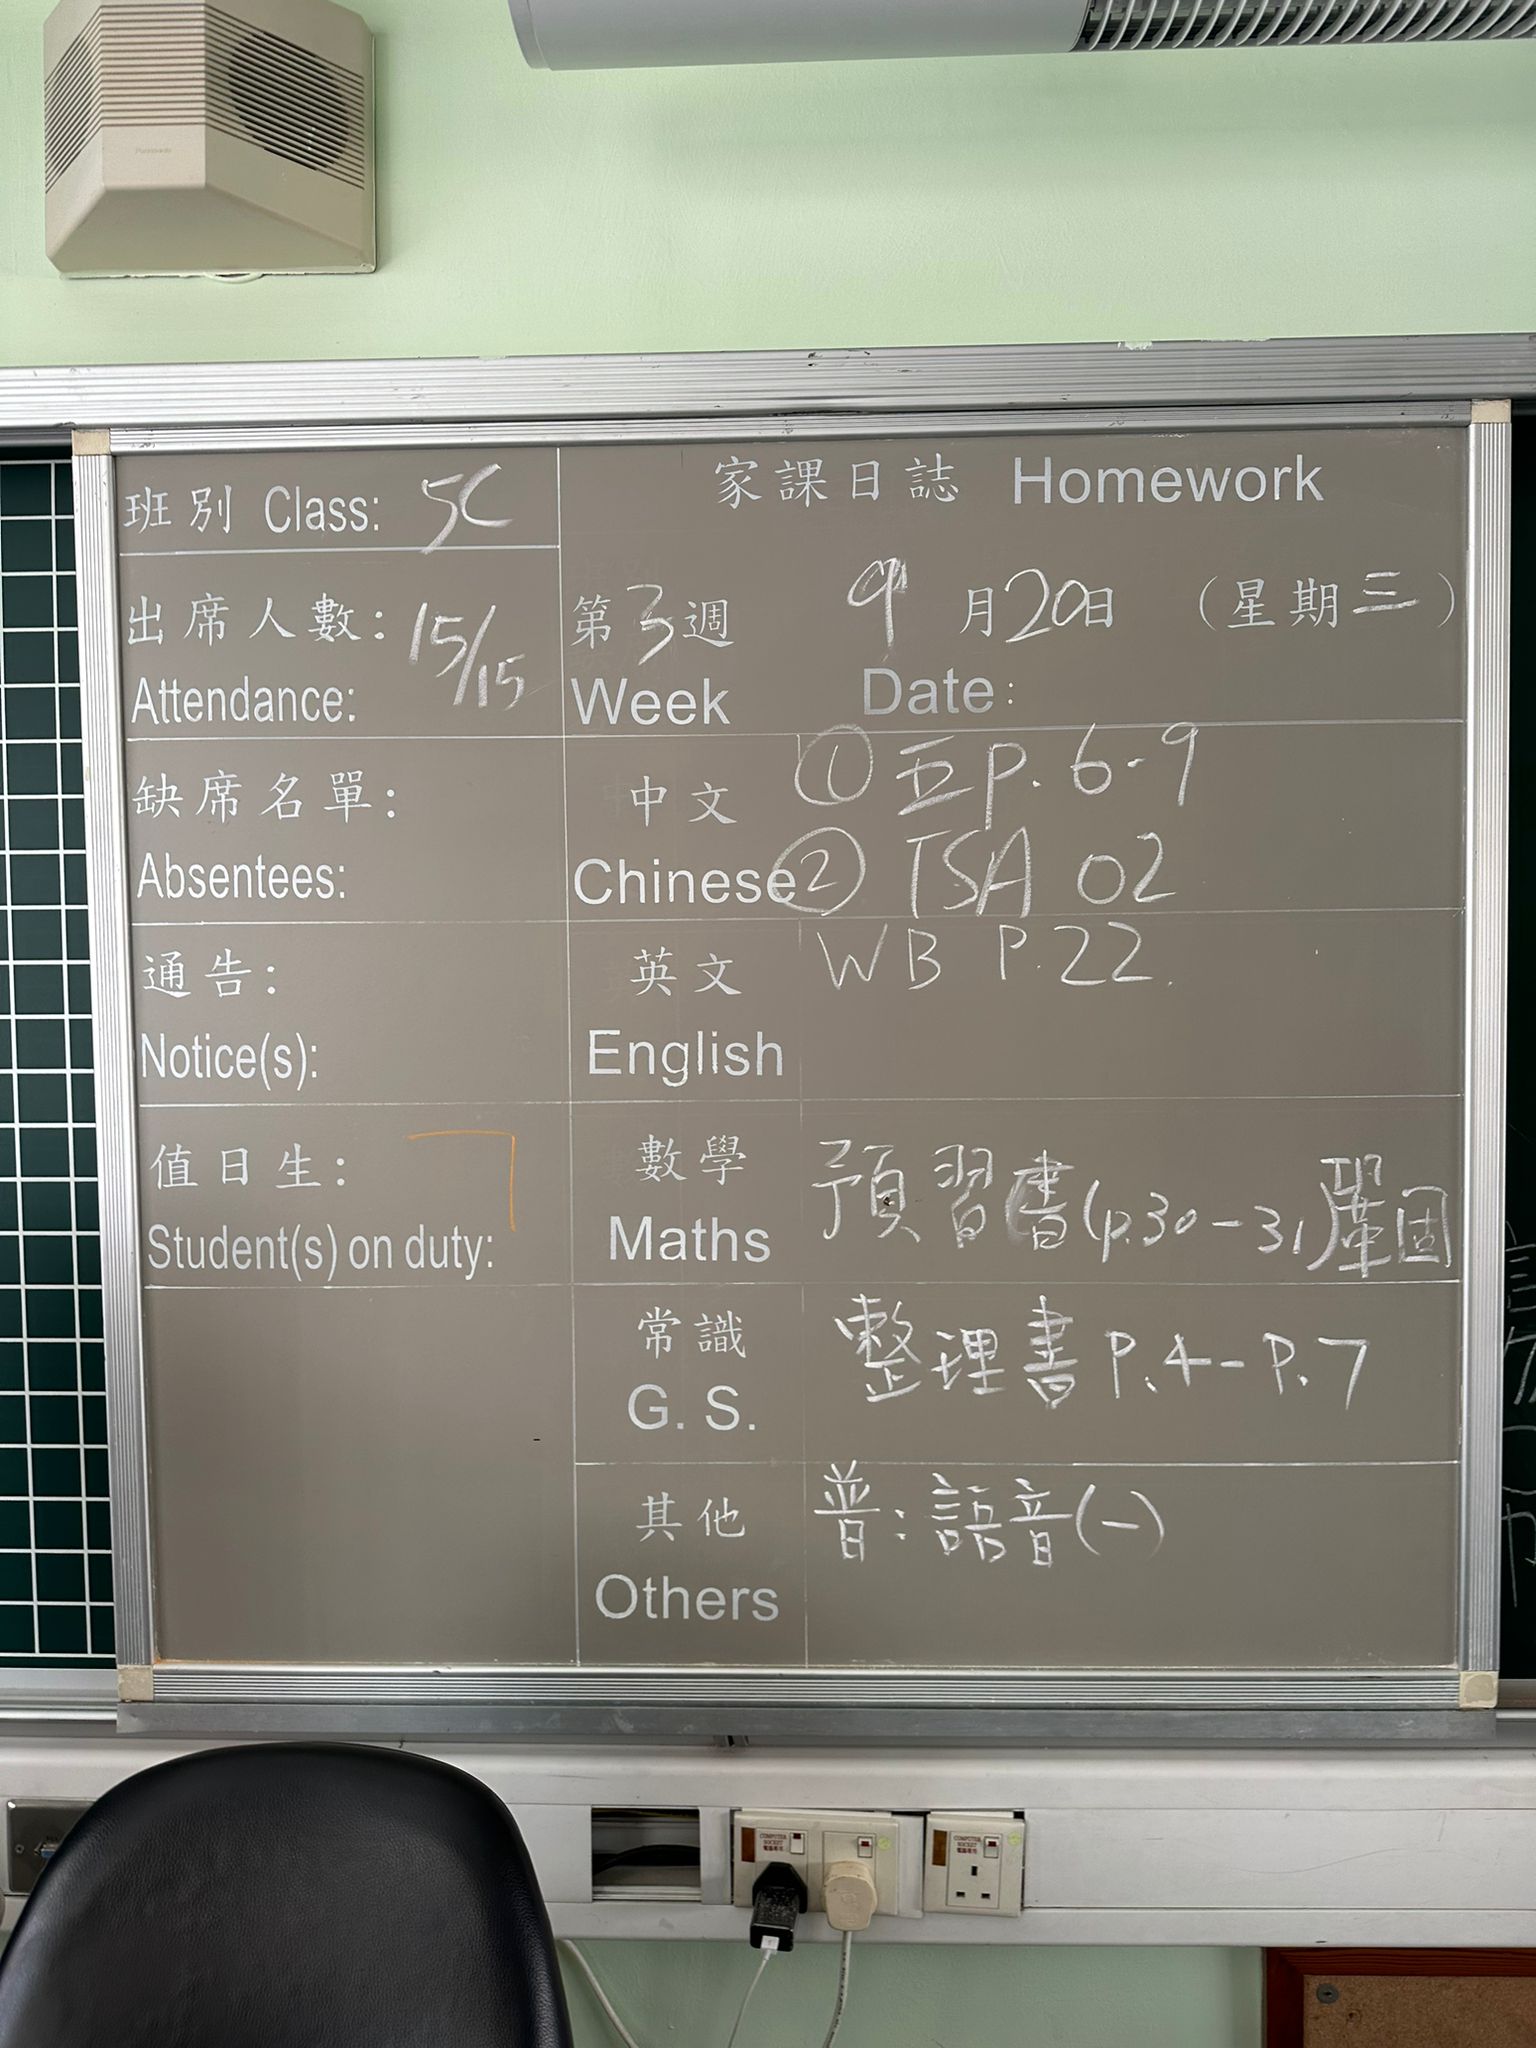 班別 Class: 5C
出席人數: 15/15
Attendance:
缺席名單:
Absentees:
通告:
Notice(s):
值日生:
Student(s) on duty:
家課日誌 Homework
第3週 9月20日 (星期三)
Week Date:
中文 ① 五 p. 6-9
Chinese ② TSA 02
英文 WB P.22.
English
數學 預習書(p.30-31)鞏固
Maths
常識 整理書 P.4-P.7
G. S.
其他 普:語音(一)
Others
Panasonic
COMPUTER SOCKET
電腦專用
COMPUTER SOCKET
電腦專用